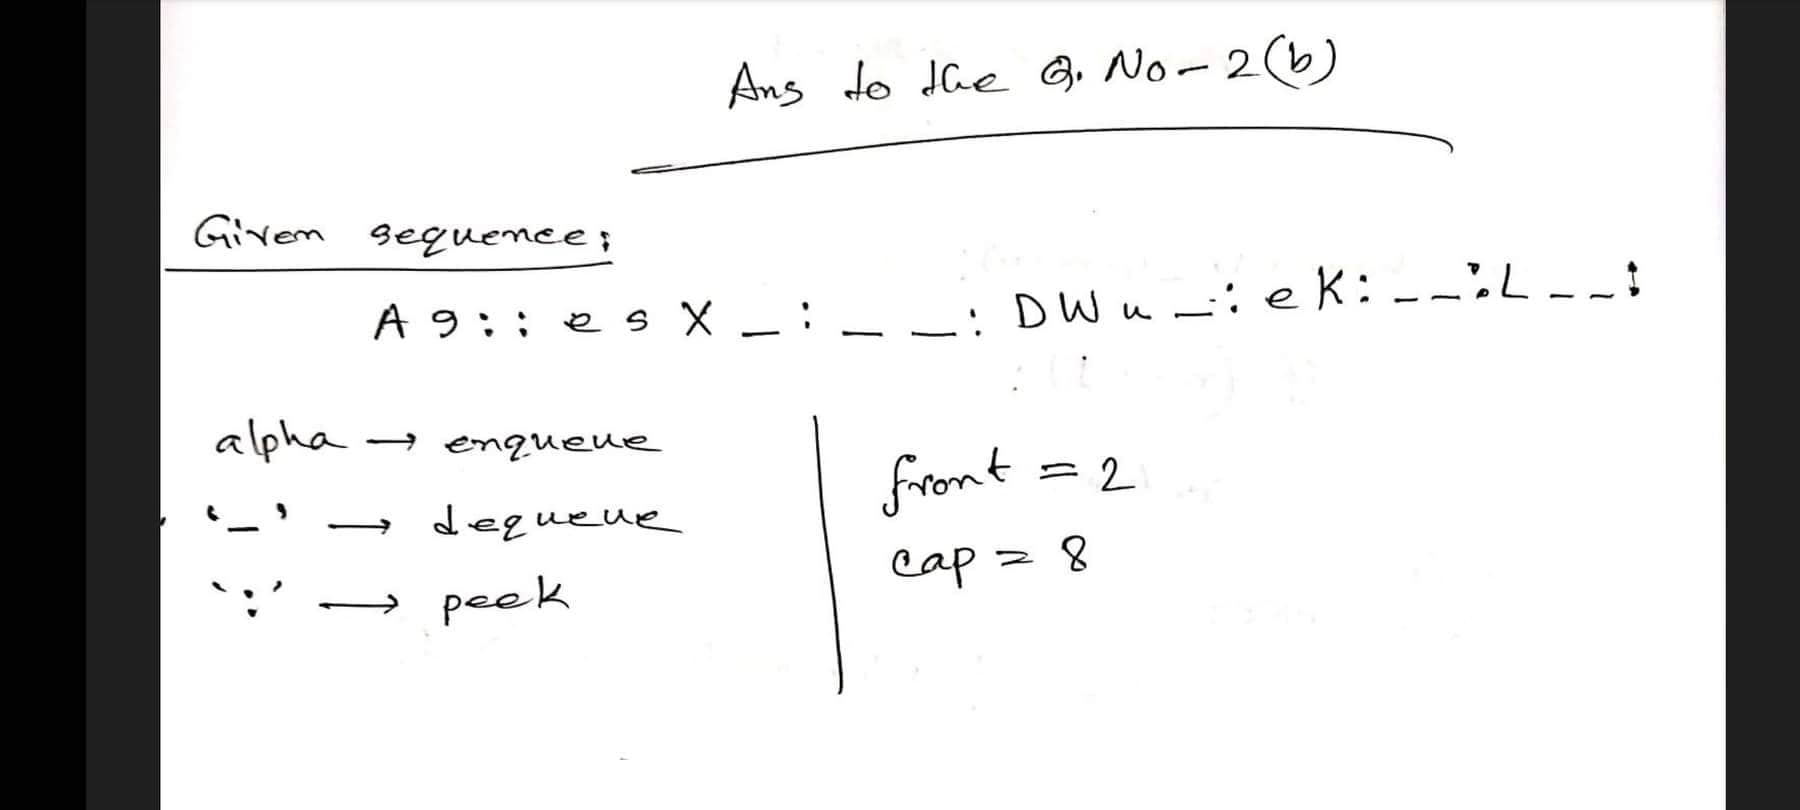 Ans to the Q. No-2(b)
Given sequence:
A g : : e s X _ : _ _ : D W u _ : e K : _ _ : L _ _ :
alpha → enqueue
'_' → dequeue
':' → peek
front = 2
cap = 8